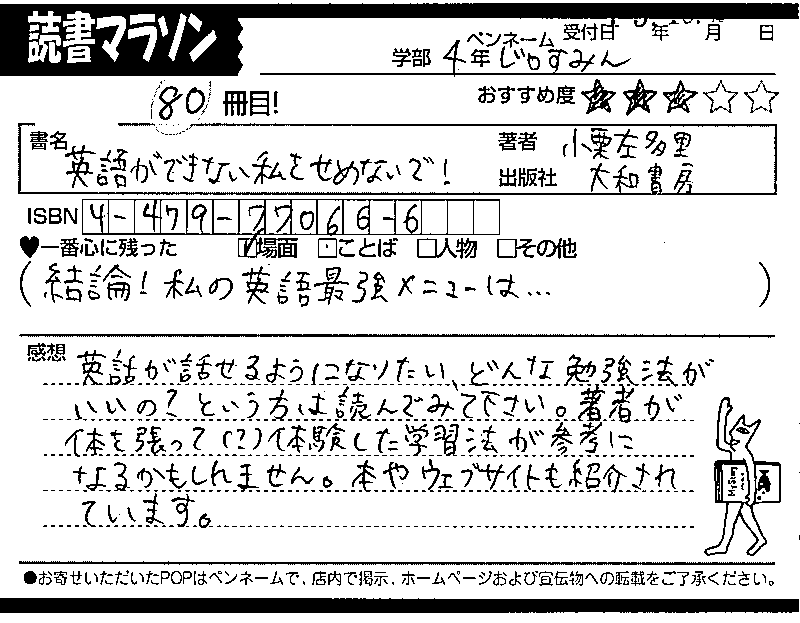 読書マラソン
受付日 年 月 日
学部 4年 ペンネーム じゃすみん
80 冊目! おすすめ度 ★★★☆☆
書名 英語ができない私をせめないで! 著者 小栗左多里
出版社 大和書房
ISBN 4-479-77066-6
♥一番心に残った ☑場面 □ことば □人物 □その他
(結論!私の英語最強メニューは…)
感想 英語が話せるようになりたい、どんな勉強法が
いいの?という方は読んでみて下さい。著者が
体を張って(?)体験した学習法が参考に
なるかもしれません。本やウェブサイトも紹介され
ています。
●お寄せいただいたPOPはペンネームで、店内で掲示、ホームページおよび宣伝物への転載をご了承ください。